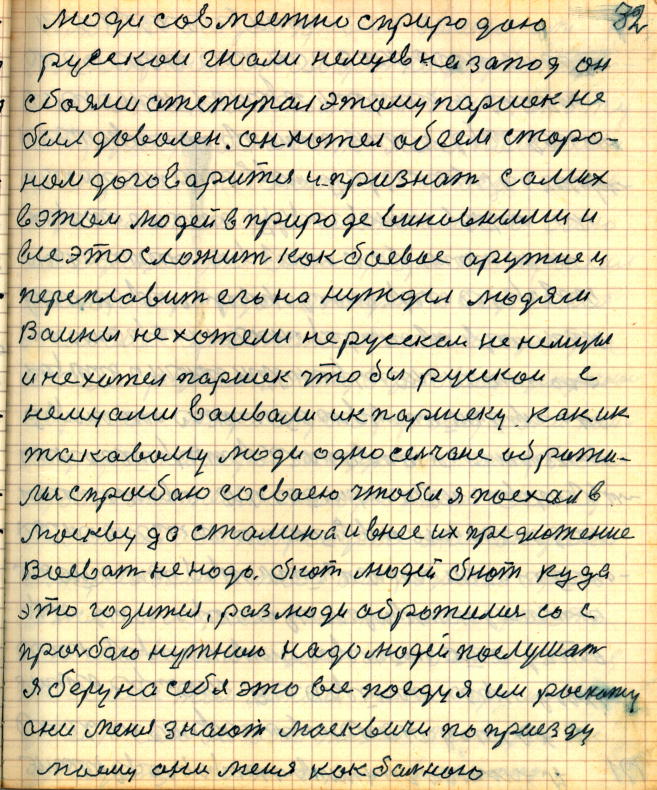 32
люди совместно сприродою
русской гнали немцев на запод он
сбоями отступал этому паршек не
был доволен. он хотел обеем сторо-
ном договарится и признат самих
в этом людей в природе виновными и
все это сложит как боевое аружие и
переплавит его на нужды людями
Вайны не хотели не русской не немцы
и не хотел паршек что бы русской с
немцами ваивали и к паршеку как и к
такавому люди односелчане обрати-
лис прозбаю со своею чтобы я поехал в
москву до сталина и внес их предложение
Воеват не нодо. бют людей бют куда
это годится, раз люди обротилис со с
прозбаю нужною надо людей послушат
я беру на себя это все поеду я им роскажу
они меня знают масквичи по приезду
моему они меня как балного